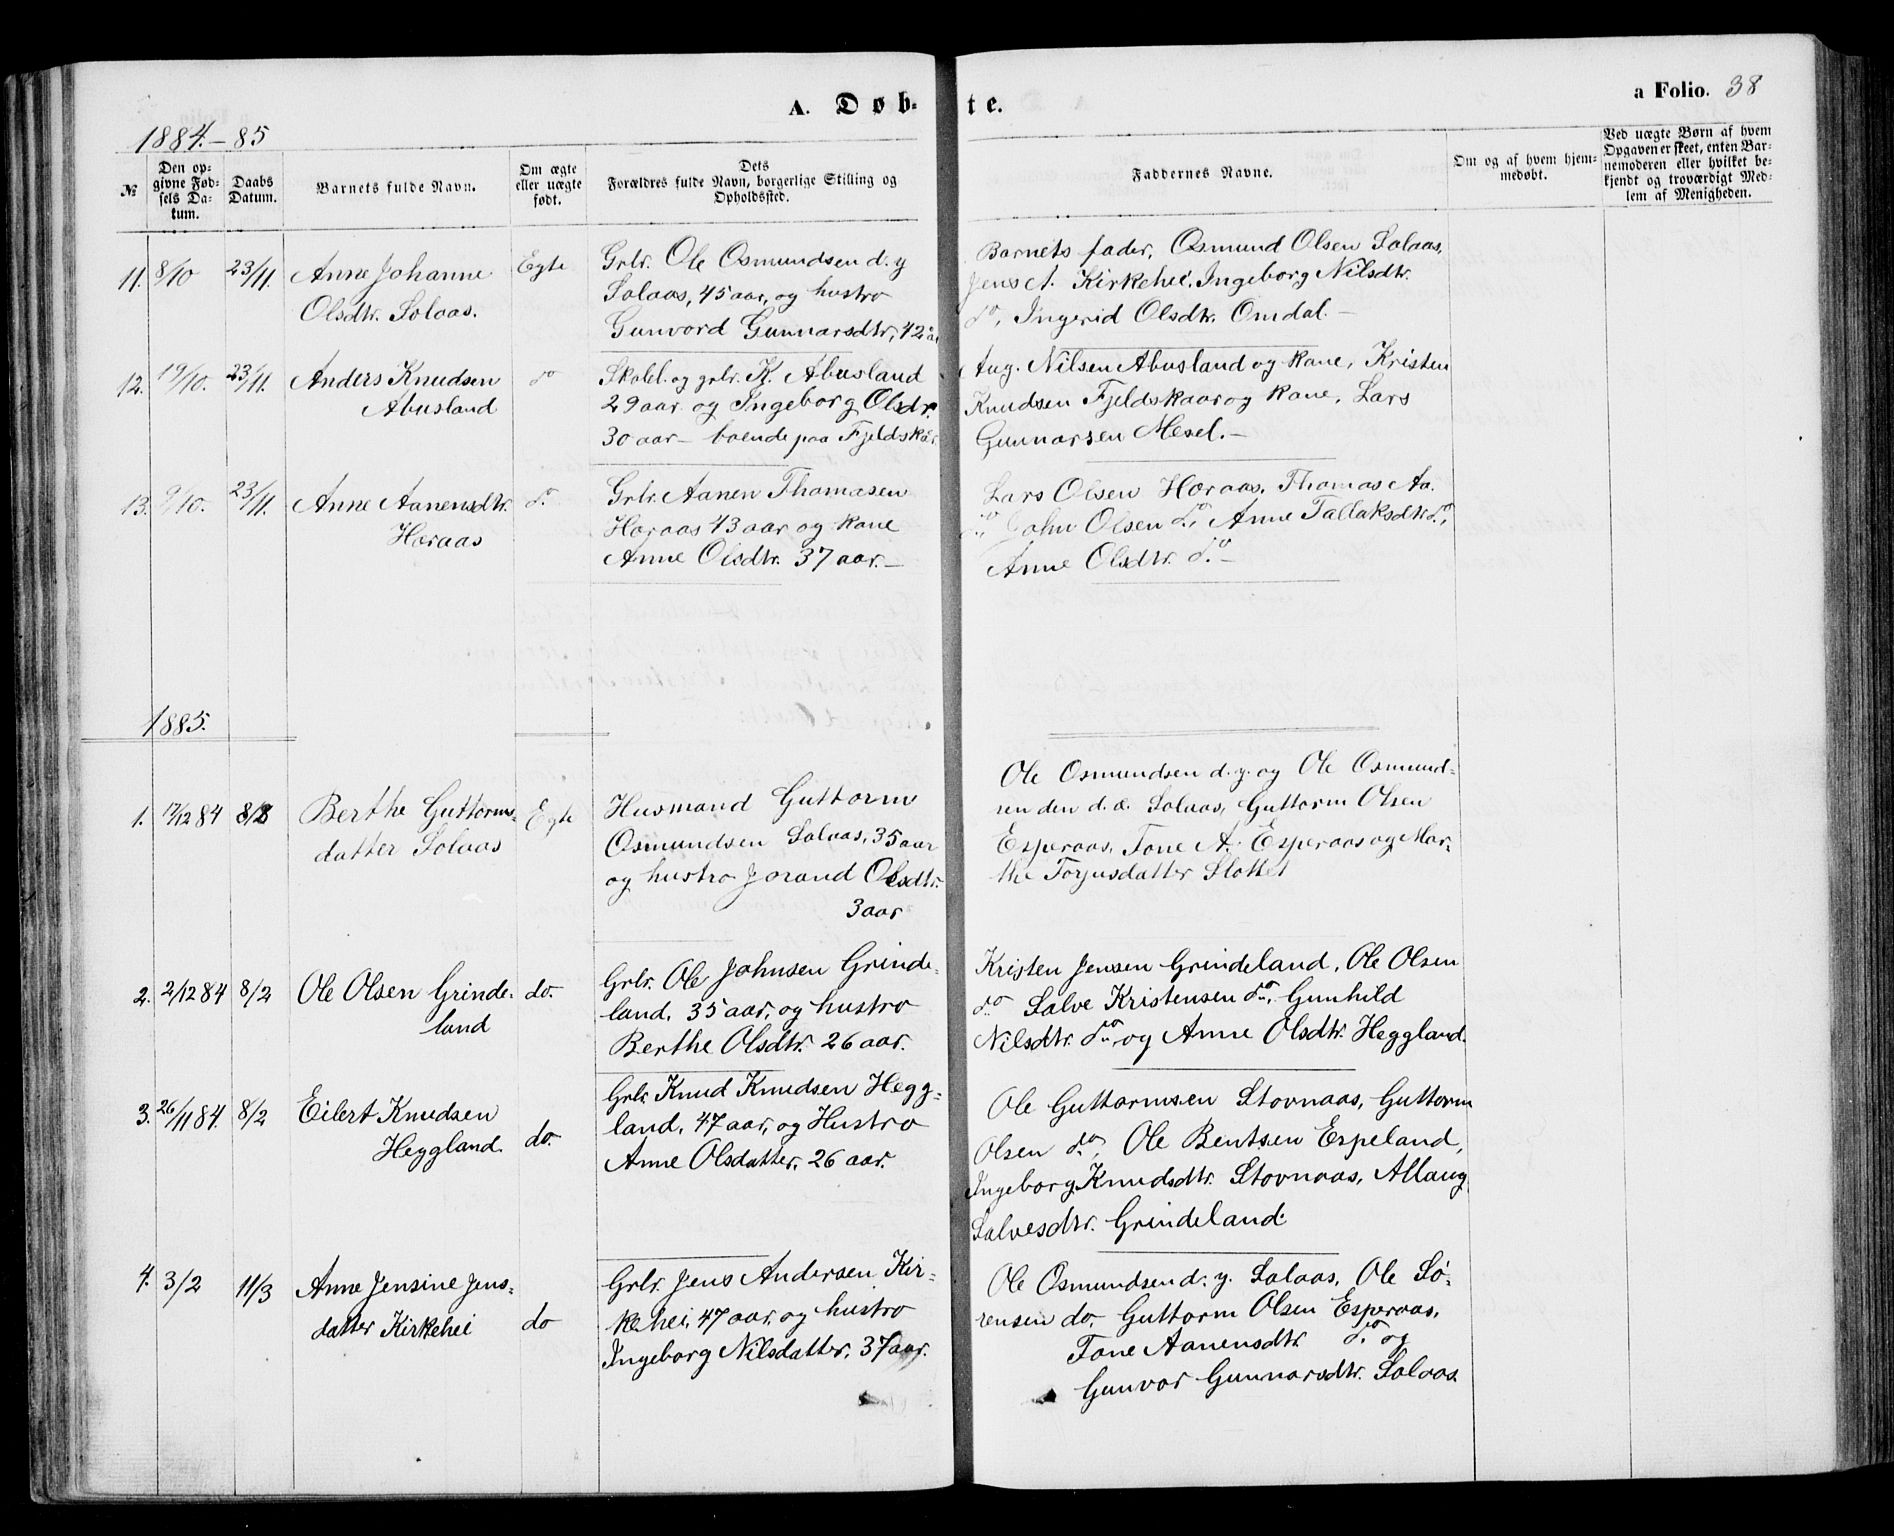 A. Døb-te.
a Folio. 38
1884.-85
№
Den op-
givne Fød-
sels Da-
tum.
Daabs
Datum.
Barnets fulde Navn.
Om ægte
eller uægte
født.
Dets
Forældres fulde Navn, borgerlige Stilling og
Opholdssted.
Faddernes Navne.
Om og af hvem hjem-
medøbt.
Ved uægte Børn af hvem
Opgaven er skeet, enten Bar-
nemoderen eller hvilket be-
kjendt og troværdigt Med-
lem af Menigheden.
11. 8/10 23/11. Anne Johanne
Olsdtr. Solaas.
Egte
Grbr. Ole Osmundsen d. y
Solaas, 45 aar, og hustro
Gunvord Gunnarsdtr, 42 aa
Barnets fader, Osmund Olsen Solaas,
Jens A. Kirkehei, Ingeborg Nilsdtr.
do, Ingerid Olsdtr. Omdal.-
12. 19/10. 23/11. Anders Knudsen
Abusland
do
Skolel. og grbr. K. Abusland
29 aar og Ingeborg Olsdr.
30 aar - boende paa Fjeldskår
Aug. Nilsen Abusland og Kone, Kristen
Knudsen Fjeldskaar og Kone, Lars
Gunnarsen Mesel.-
13. 9/10. 23/11. Anne Aanensdtr.
Horaas
do.
Grbr. Aanen Thomasen
Horaas 43 aar og Kone
Anne Olsdtr. 37 aar.-
Lars Olsen Horaas, Thomas Aa.
do, John Olsen do, Anne Tallaksdtr do,
Anne Olsdtr. do.-
1885.
1. 17/12 84 8/2 Berthe Guttorms-
datter Solaas
Egte
Husmand Guttorm
Osmundsen Solaas, 35 aar
og hustro Jorand Olsdtr.
3 aar
Ole Osmundsen d. y. og Ole Osmund-
sen den d. æ. Solaas, Guttorm Olsen
Esperaas, Tone A. Esperaas og Mar-
the Torjusdatter Slottet
2. 2/12 84 8/2 Ole Olsen Grinde-
land
do.
Grbr. Ole Johnsen Grinde-
land, 35 aar, og hustro
Berthe Olsdtr. 26 aar.
Kristen Jensen Grindeland, Ole Olsen
do Salve Kristensen do, Gunhild
Nilsdtr. do, og Anne Olsdtr. Heggland.
3. 26/11 84. 8/2 Eilert Knudsen
Heggland.
do.
Grbr Knud Knudsen Hegg-
land, 47 aar, og Hustro
Anne Olsdatter, 26 aar.
Ole Guttormsen Stovnaas, Guttorm
Olsen do, Ole Bentsen Espeland,
Ingeborg Knudsdtr. Stovnaas, Allaug
Salvesdtr. Grindeland.
4. 3/2 11/3 Anne Jensine Jens-
datter Kirkehei
do
Grbr. Jens Andersen Kir-
kehei, 47 aar, og hustro
Ingeborg Nilsdatter, 37 aar.
Ole Osmundsen d. y. Solaas, Ole Sö-
rensen do. Guttorm Olsen Esperaas,
Tone Aanensdtr. do. og
Gunvor Gunnarsdtr. Solaas